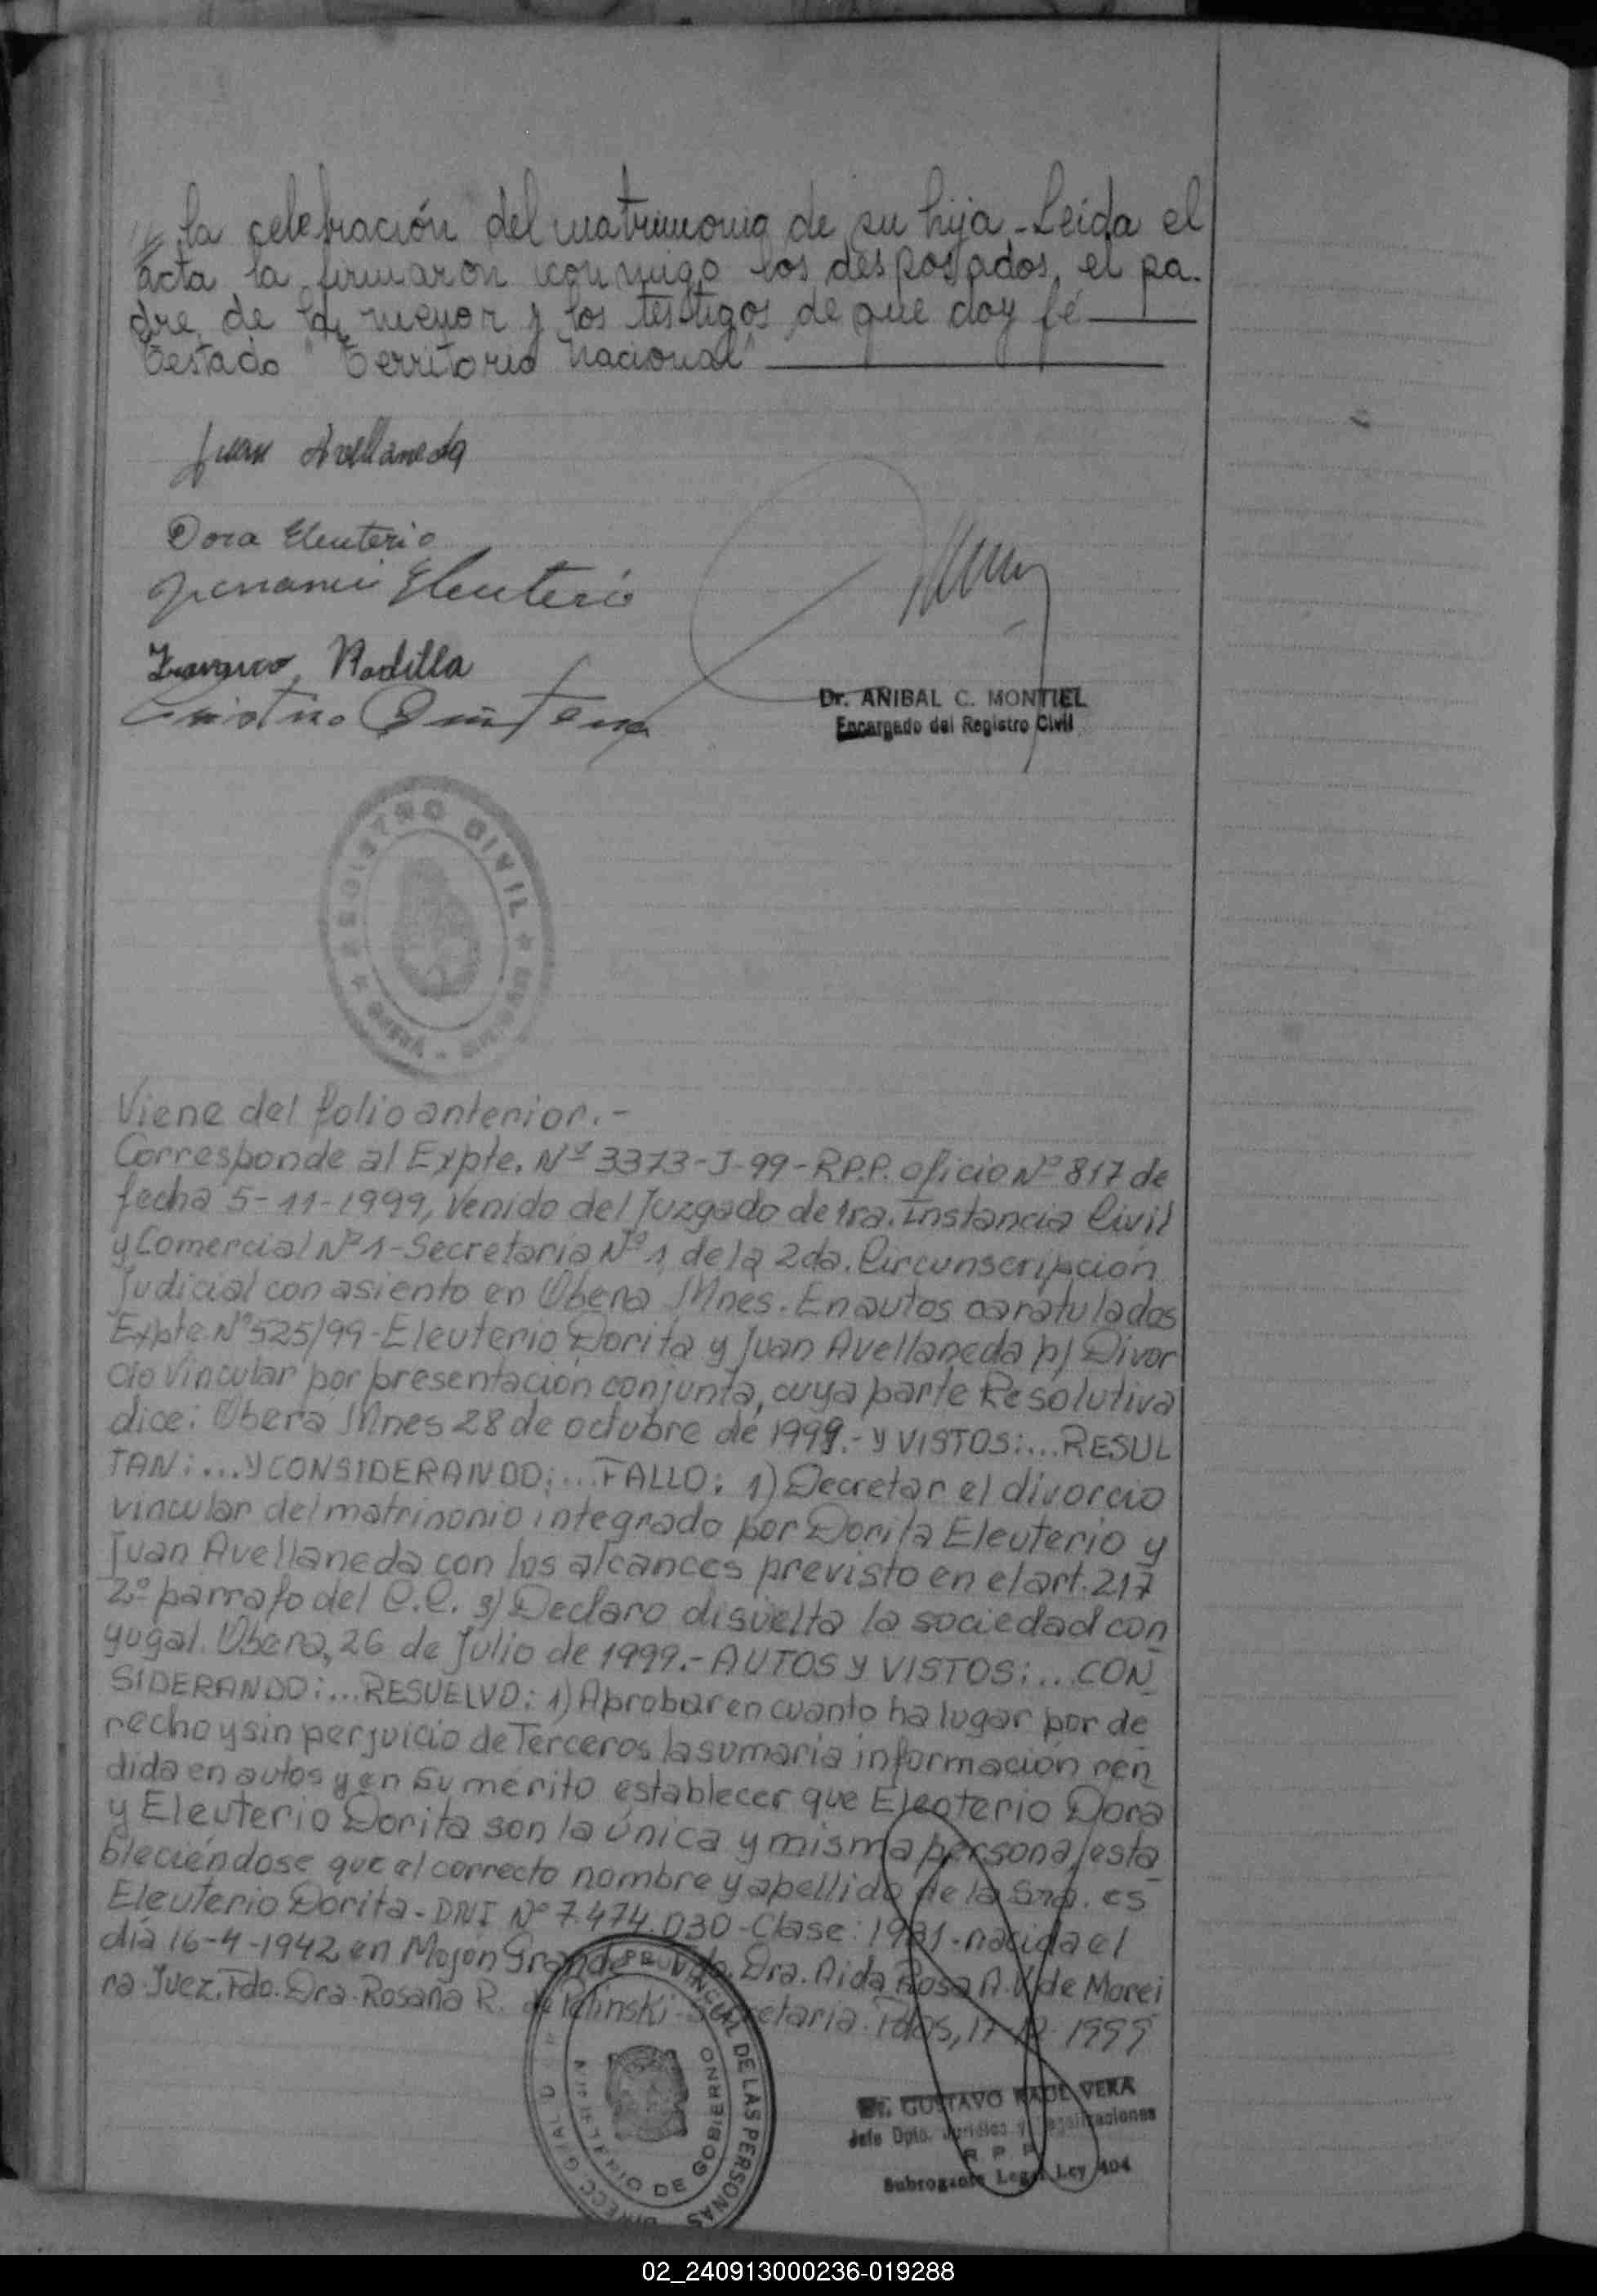 la celebración del matrimonio de su hija.-Leida el
acta la firmaron conmigo los desposados, el pa-
dre de la menor y los testigos de que doy fé
Testado "Territorio Nacional"
Juan Avellaneda
Dora Eleuterio
Eleuterio
Radilla
Quintana
Dr. ANIBAL C. MONTIEL
Encargado del Registro Civil
REGISTRO CIVIL
Viene del folio anterior.-
Corresponde al Expte. Nº 3373-J-99-R.P.P. oficio Nº 817 de
fecha 5-11-1999, Venido del Juzgado de 1ra. Instancia Civil
y Comercial Nº 1-Secretaria Nº 1 de la 2da. Circunscripción
Judicial con asiento en Oberá Mnes. En autos caratulados
Expte Nº 525/99-Eleuterio Dorita y Juan Avellaneda p/ Divor
cio Vincular por presentación conjunta, cuya parte Resolutiva
dice: Oberá Mnes 28 de octubre de 1999.- y VISTOS:...RESUL
TAN:...Y CONSIDERANDO:...FALLO: 1) Decretar el divorcio
vincular del matrimonio integrado por Dorita Eleuterio y
Juan Avellaneda con los alcances previsto en el art. 217
2º párrafo del C.C. 3) Declaro disuelta la sociedad con
yugal. Oberá, 26 de Julio de 1999.-AUTOS Y VISTOS:...CON
SIDERANDO:...RESUELVO: 1) Aprobar en cuanto ha lugar por de
recho y sin perjuicio de Terceros la sumaria información ren
dida en autos y en su mérito establecer que Eleoterio Dora
y Eleuterio Dorita son la única y misma persona, esta
bleciéndose que el correcto nombre y apellido de la Sra. es
Eleuterio Dorita-DNI Nº 7.474.030-Clase: 1931-nacida el
día 16-4-1942 en Mojón Grande. Fdo. Dra. Aida Rosa A. V. de Morei
ra-Juez. Fdo. Dra. Rosana R. de Pelinski-Secretaria. Pdas, 17-12-1999
DIRECC. GRAL. PROVINCIAL DE LAS PERSONAS
MINISTERIO DE GOBIERNO
Dr. GUSTAVO RAUL VERA
Jefe Dpto. Jurídico y Legalizaciones
R P P
Subrogante Legal Ley 404
02_240913000236-019288